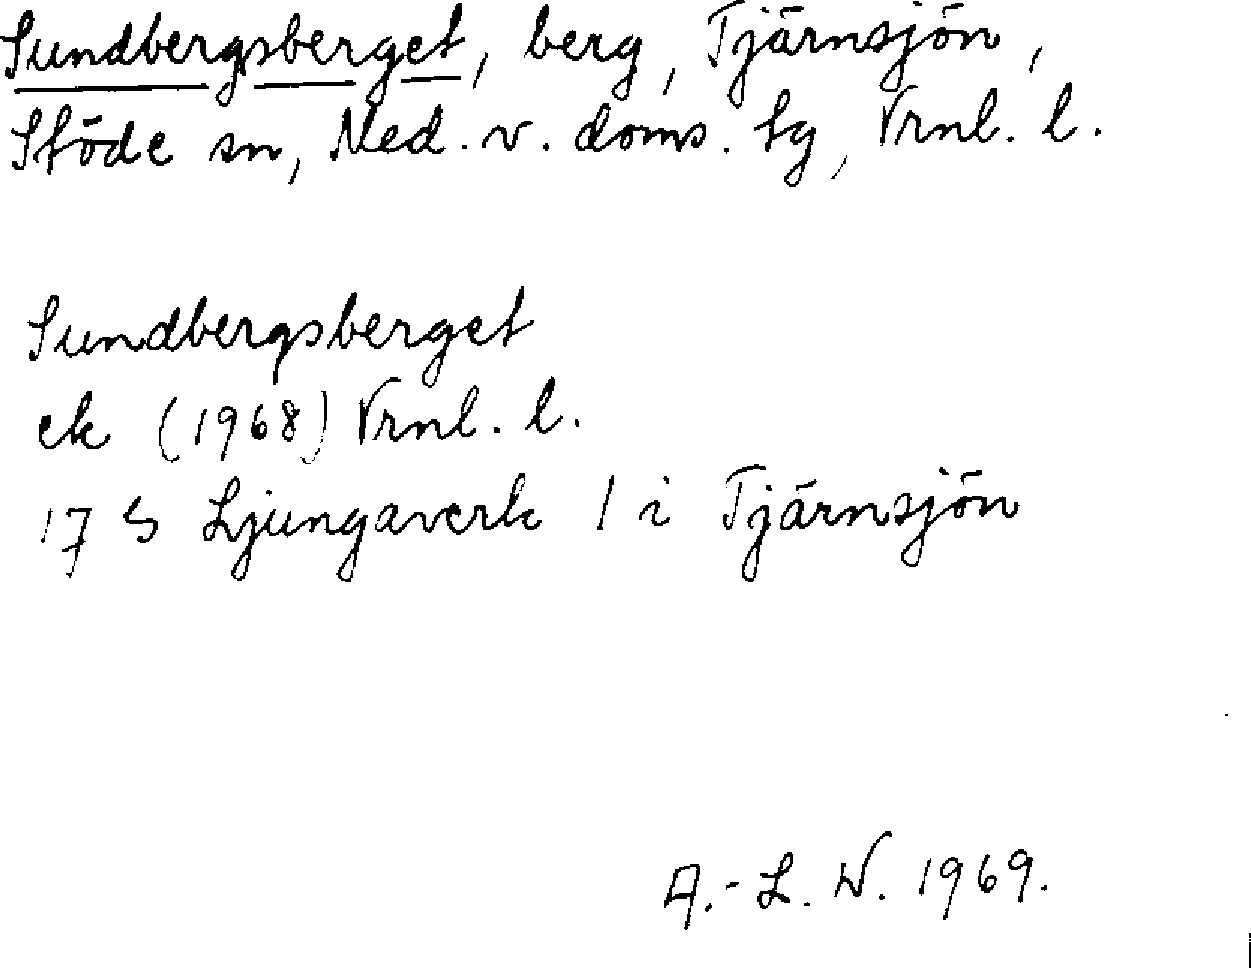 Sundbergsberget, berg, Tjärnsjön,
Stöde sn, Ned. v. doms. tg, Vrnl. l.
Sundbergsberget
ek (1968) Vrnl. l.
17 S Ljungaverk 1 i Tjärnsjön
A.-L. W. 1969.